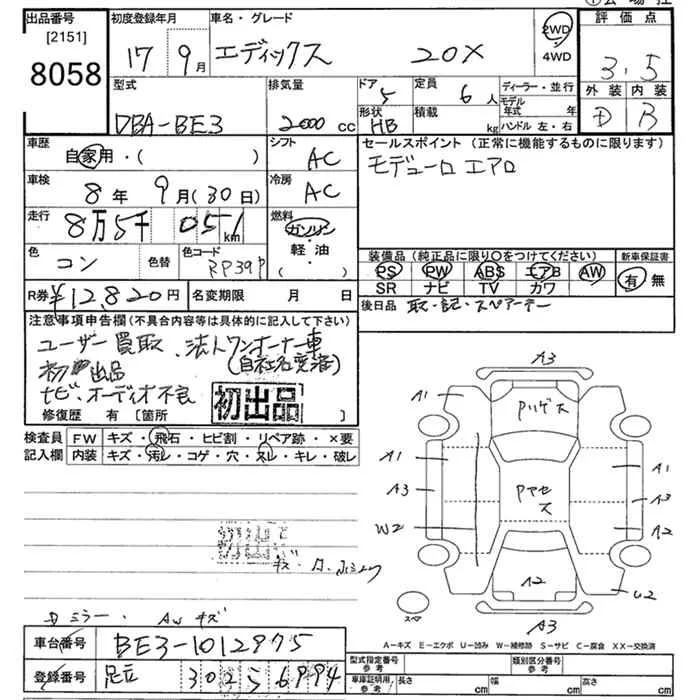 出品番号 初度登録年月 車名・グレード ①会場控 評価点
[2151] 8058
17 9月 エディックス 20X 2WD/4WD 3.5
型式 排気量 ドア 定員 ディーラー・並行 外装 内装
DBA-BE3 2000cc 5 6人 モデル年式 年 D B
形状 積載 HB kg ハンドル 左・右
車歴 自家用・( ) シフト AC セールスポイント(正常に機能するものに限ります)
車検 8年 9月(30日) 冷房 AC モデューロ エアロ
走行 8万5千051km 燃料 ガソリン・軽油・( )
色 コン 色替 色コード RP39P 装備品(純正品に限り○をつけてください) 新車保証書
PS PW ABS エアB AW 有 無
SR ナビ TV カワ
R券 ¥12,820円 名変期限 月 日 後日品 取・記・スペアーキー
注意事項申告欄(不具合内容等は具体的に記入して下さい)
ユーザー買取、法人ワンオーナー車
(自社名変済)
初出品
ナビ、オーディオ不良
初出品
修復歴 有〔箇所 〕
検査員記入欄 FW キズ・飛石・ヒビ割・リペア跡・×要
内装 キズ・汚レ・コゲ・穴・スレ・キレ・破レ
初出品
ミラー・AWキズ
A3
A1 Pハゲ ス
A1 A1
A3 A3
Pヤセ ス
W2 A2
A2 U2
スペア A3
A-キズ E-エクボ U-凹み W-補修跡 S-サビ C-腐食 XX-交換済
車台番号 BE3-1012975 型式指定番号 参考 類別区分番号 参考
登録番号 足立 302 5 6994 車庫証明用、参考 長さ cm 幅 cm 高さ cm